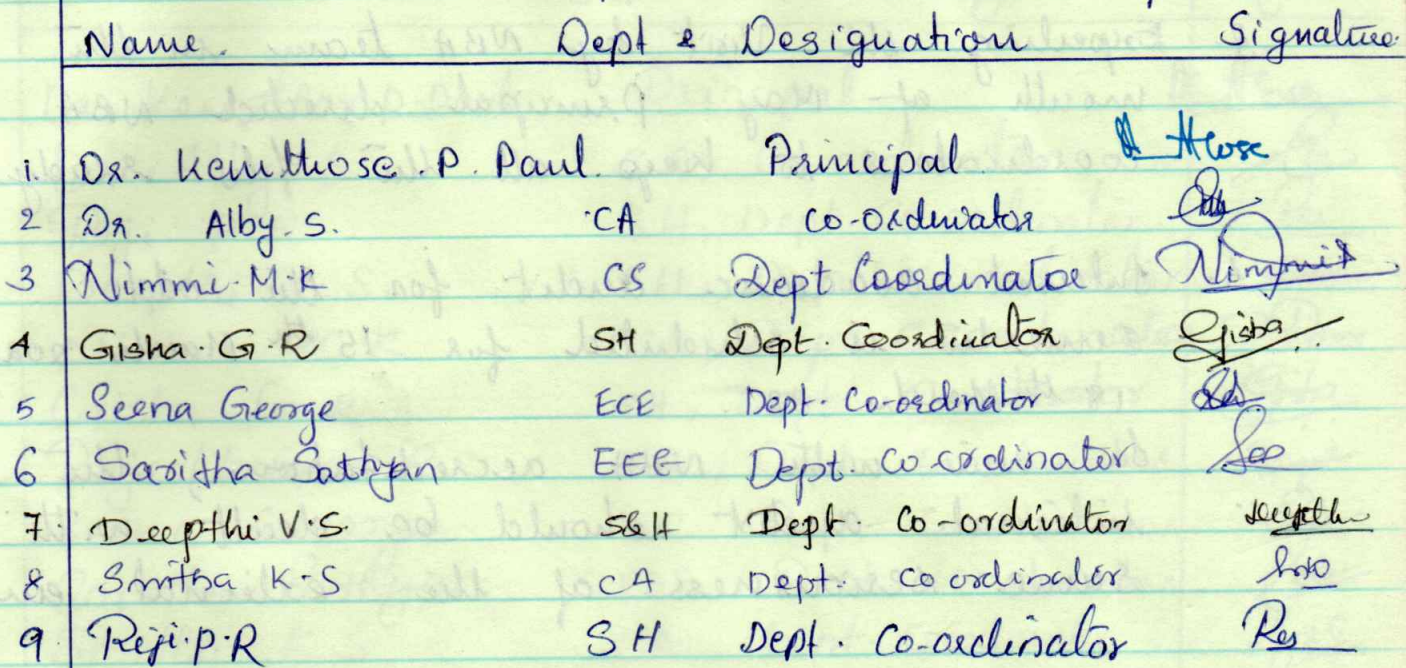 Name. Dept & Designation Signature.
1. Dr. Kemthose. P. Paul. Principal
2 Dr. Alby. S. CA Co-ordinator
3 Nimmi. M. K CS Dept Coordinator Nimmi
4 Gisha. G. R SH Dept. Coordinator Gisha
5 Seena George ECE Dept. Co-ordinator
6 Saritha Sathyan EEE Dept. Co ordinator
7. Deepthi V.S. S&H Dept. Co-ordinator Deepthi
8 Smitha K.S CA Dept. Co ordinator
9 Reji. P. R SH Dept. Co-ordinator